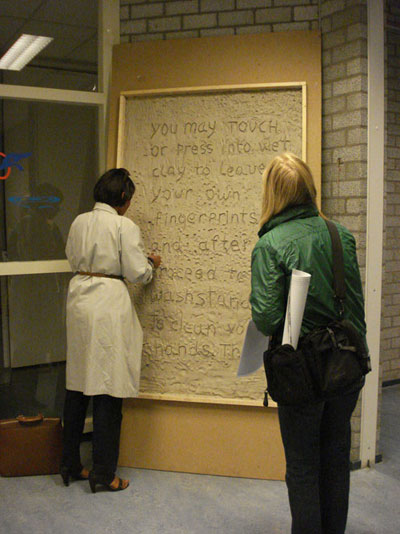 you may TOUCH
or press into wet
clay to leave
your own
fingerprints
and after
proceed to
washstand
is clean yo
hands. Th